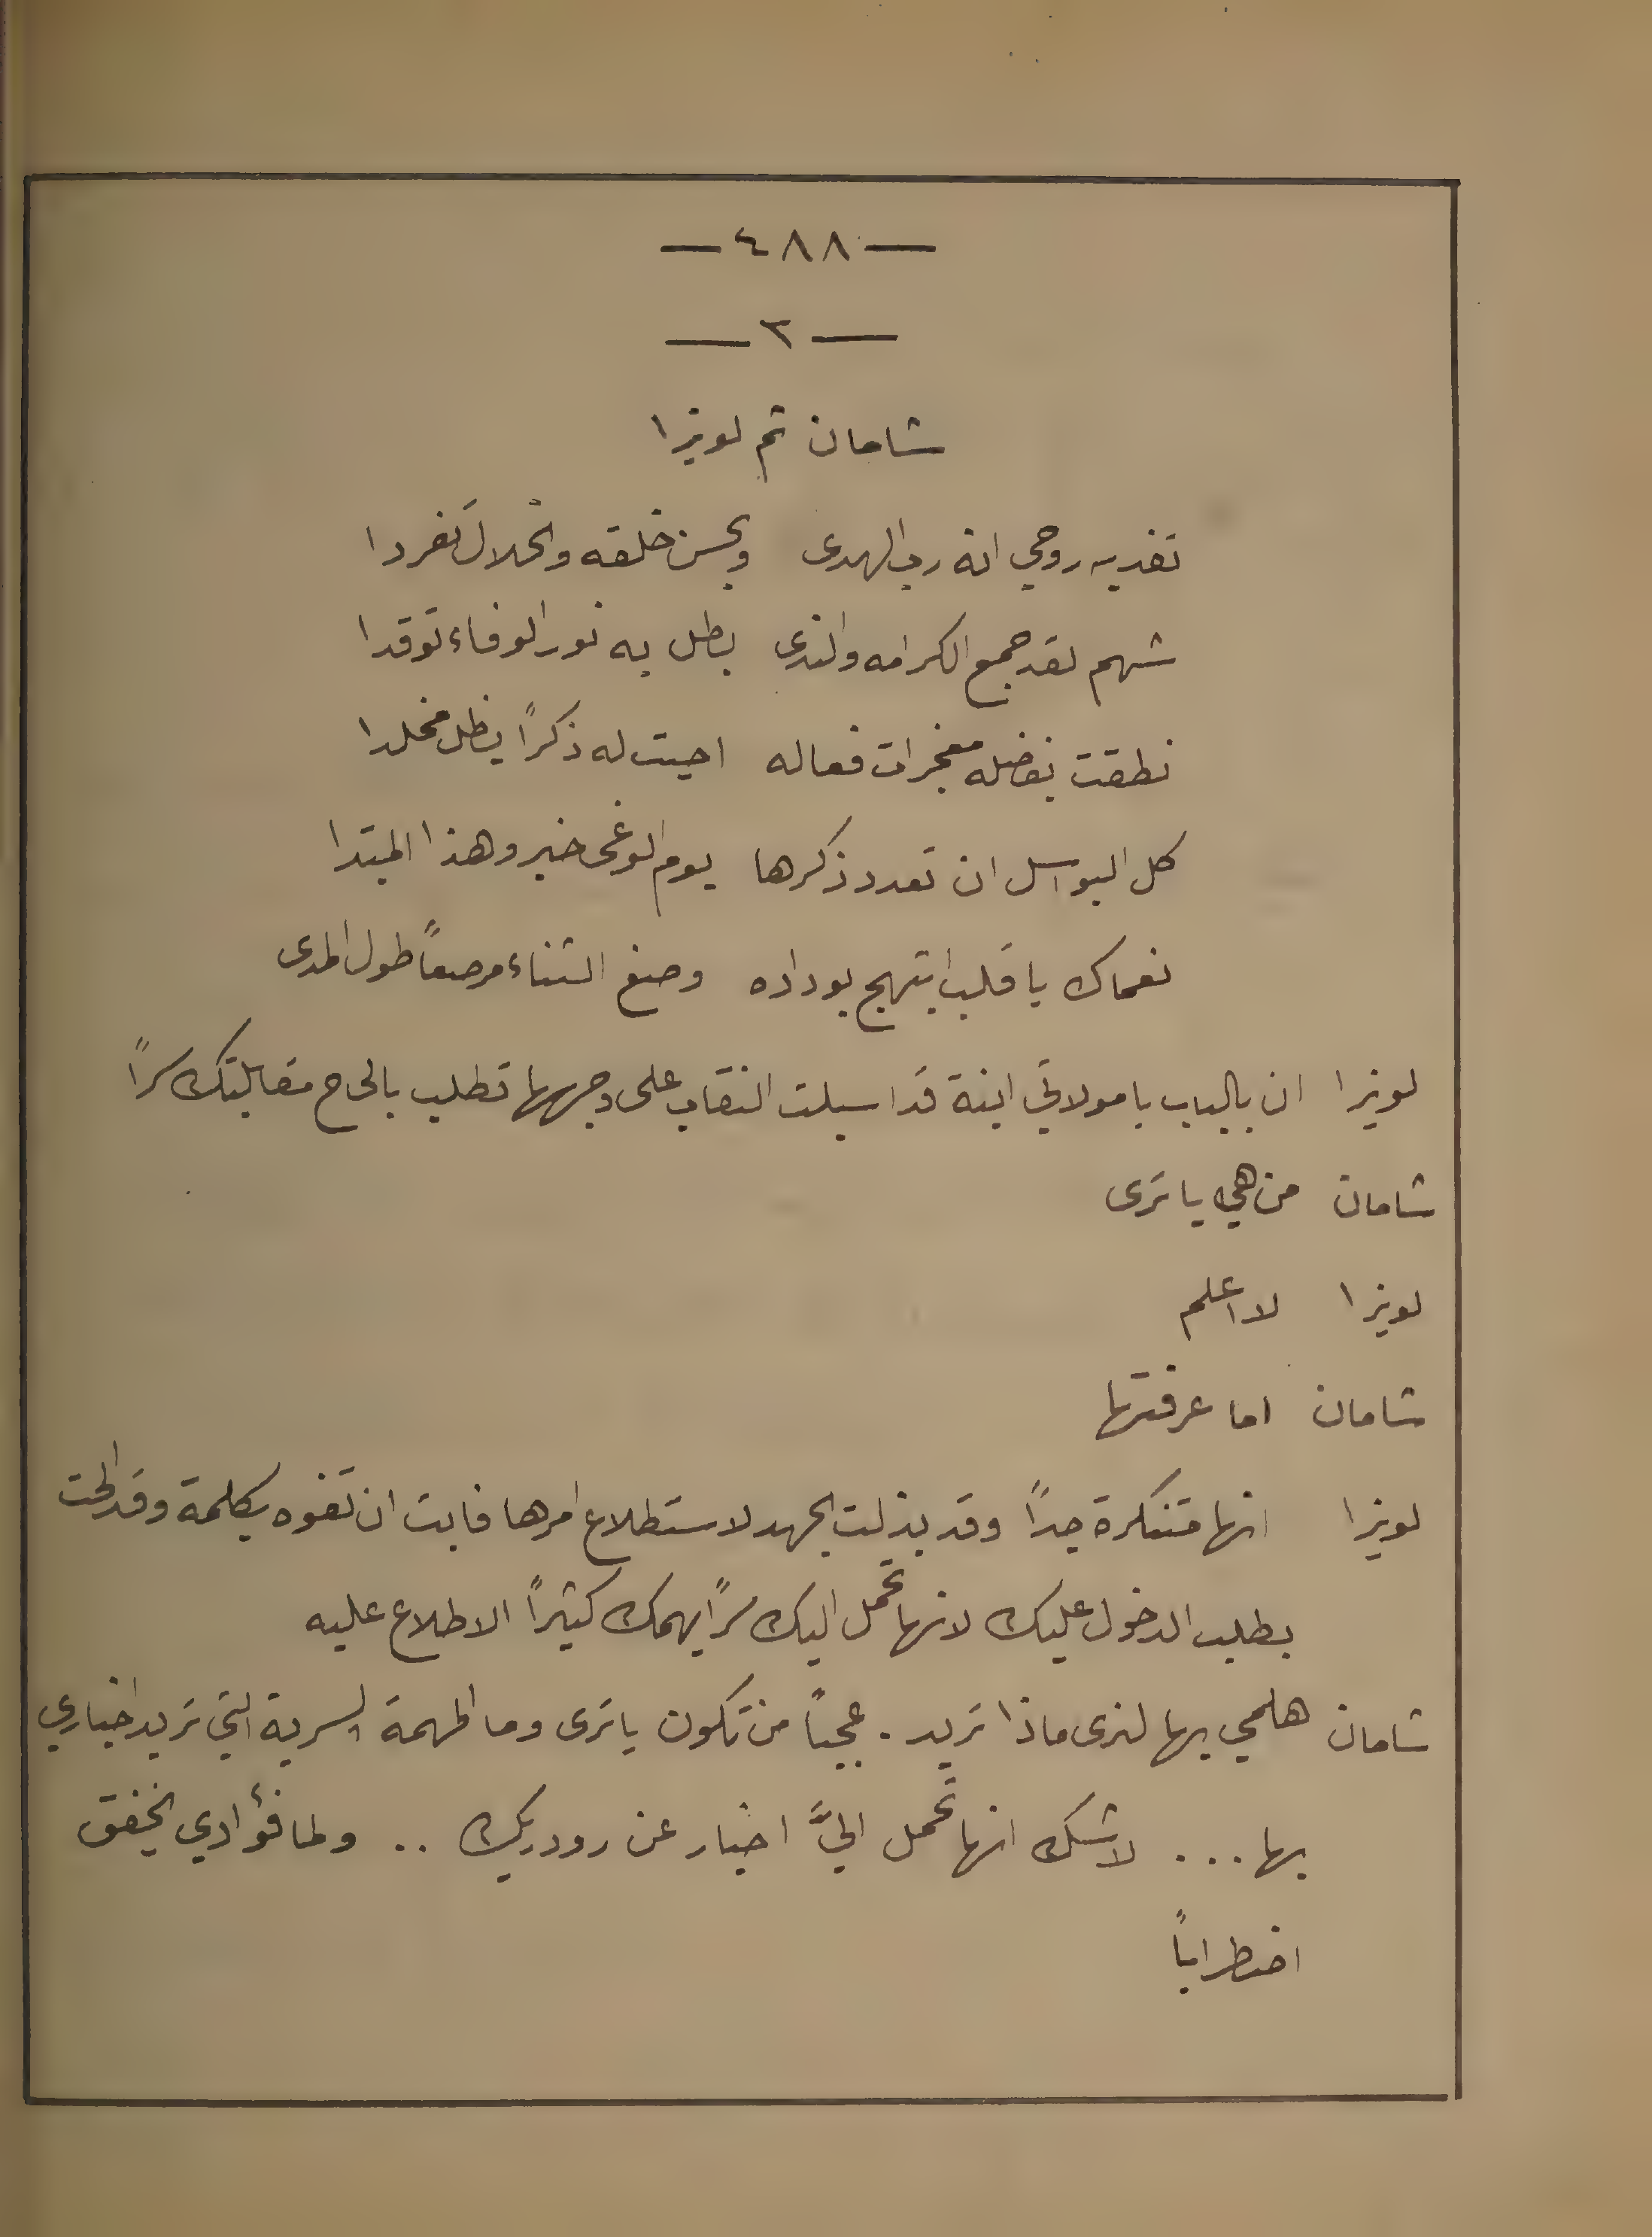 — ٤٨٨ —
— ٢ —
شامان ثم لويزا
تفديه روحي انه رب الهدى وبحسن خلقه والخلال تفردا
شهم لقد جمع الكرامه والندى بطل به نور الوفاء توقدا
نطقت بفضله مفخرات فعاله احيت له ذكراً يظل مخلدا
كل البواسل ان تعدد ذكرها يوم الوغى خبر وهذا المبتدا
نعماك يا قلب ابتهج بوداده وصغ الثناء مرصعاً طول المدى
لويزا ان بالباب يا مولاتي ابنة قد اسبلت النقاب على وجهها تطلب بالحاح مقابلتك سراً
شامان من هي يا ترى
لويزا لا اعلم
شامان اما عرفتها
لويزا انها متنكرة جداً وقد بذلت الجهد لاستطلاع امرها فابت ان تفوه بكلمة وقد الحت
بطلب الدخول عليك لانها تحمل اليك سراً يهمك كثيراً الاطلاع عليه
شامان هلمي بها لنرى ماذا تريد . عجباً من تكون يا ترى وما المهمة السرية التي تريد اخباري
بها ... لا شك انها تحمل اليَّ اخبار عن رودريك .. ولما فؤادي يخفق
اضطراباً